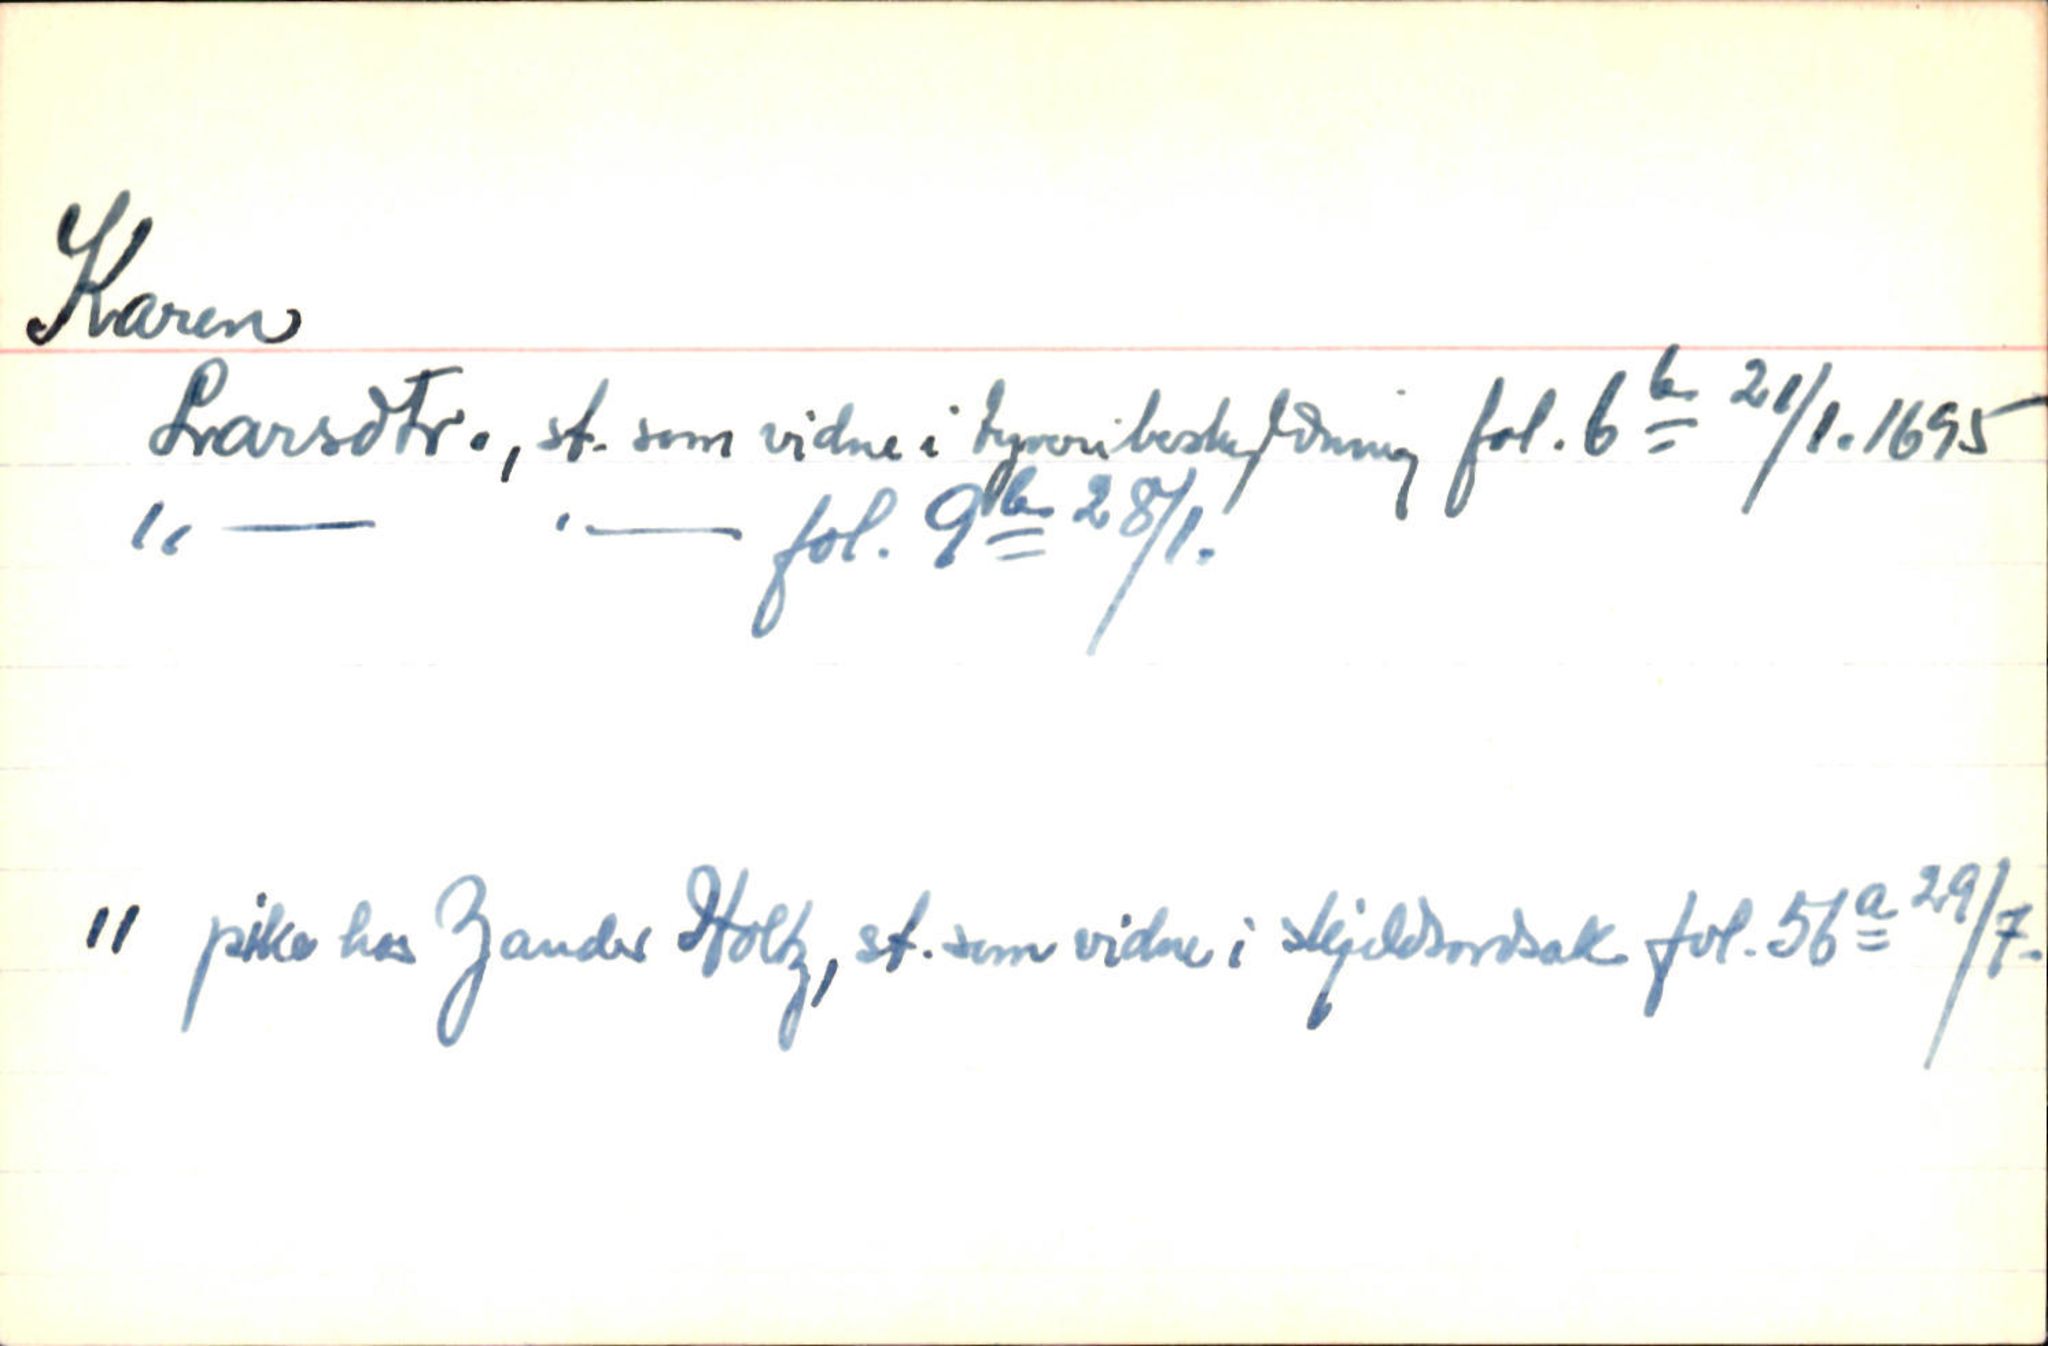 Karen
Larsdtr., st. som vidne i tyveribeskyldning fol. 6b 21/1. 1695
"— "— fol. 9b 28/1.
" pike hos Zander Holtz, st. som vidne i skjeldsordsak fol. 56a 29/7.